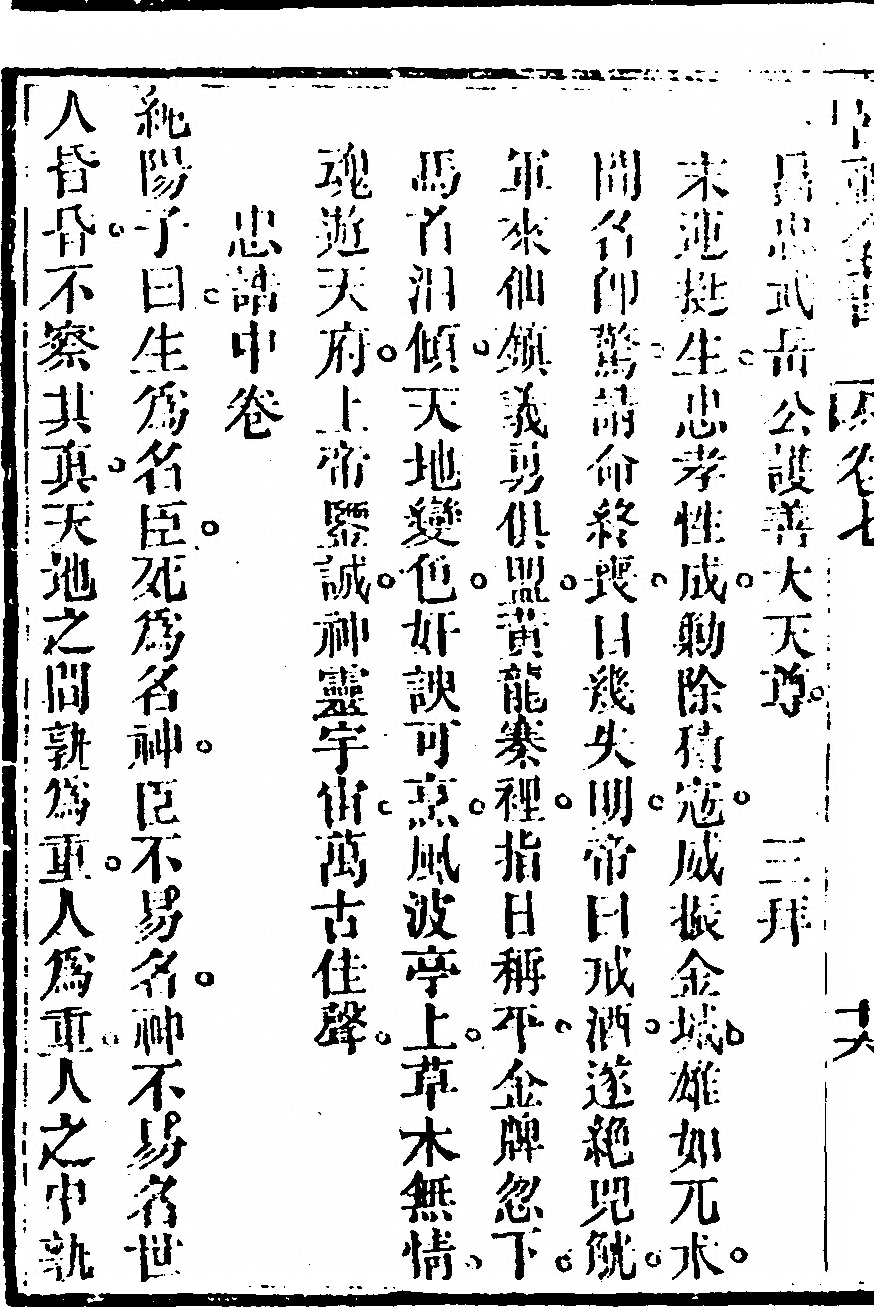 卷七 十六
忠武岳公護善大天尊。 三拜
末運挺生。忠孝性成。勦除猜寇。威振金城。雄如兀朮。
聞名卽驚。請命終喪。目幾失明。帝曰戒酒。遂絶兕觥。
軍來仙鎮。義易俱盟。黃龍寨裡。指日稱平。金牌忽下。
馬首泪傾。天地變色。奸諛可烹。風波亭上。草木無情。
魂遊天府。上帝鑒誠。神靈宇宙。萬古佳聲。
忠誥中卷
純陽子曰。生爲名臣。死爲名神。臣不易名。神不易名。世
人昏昏。不察其真。天地之間孰爲重。人爲重。人之中孰